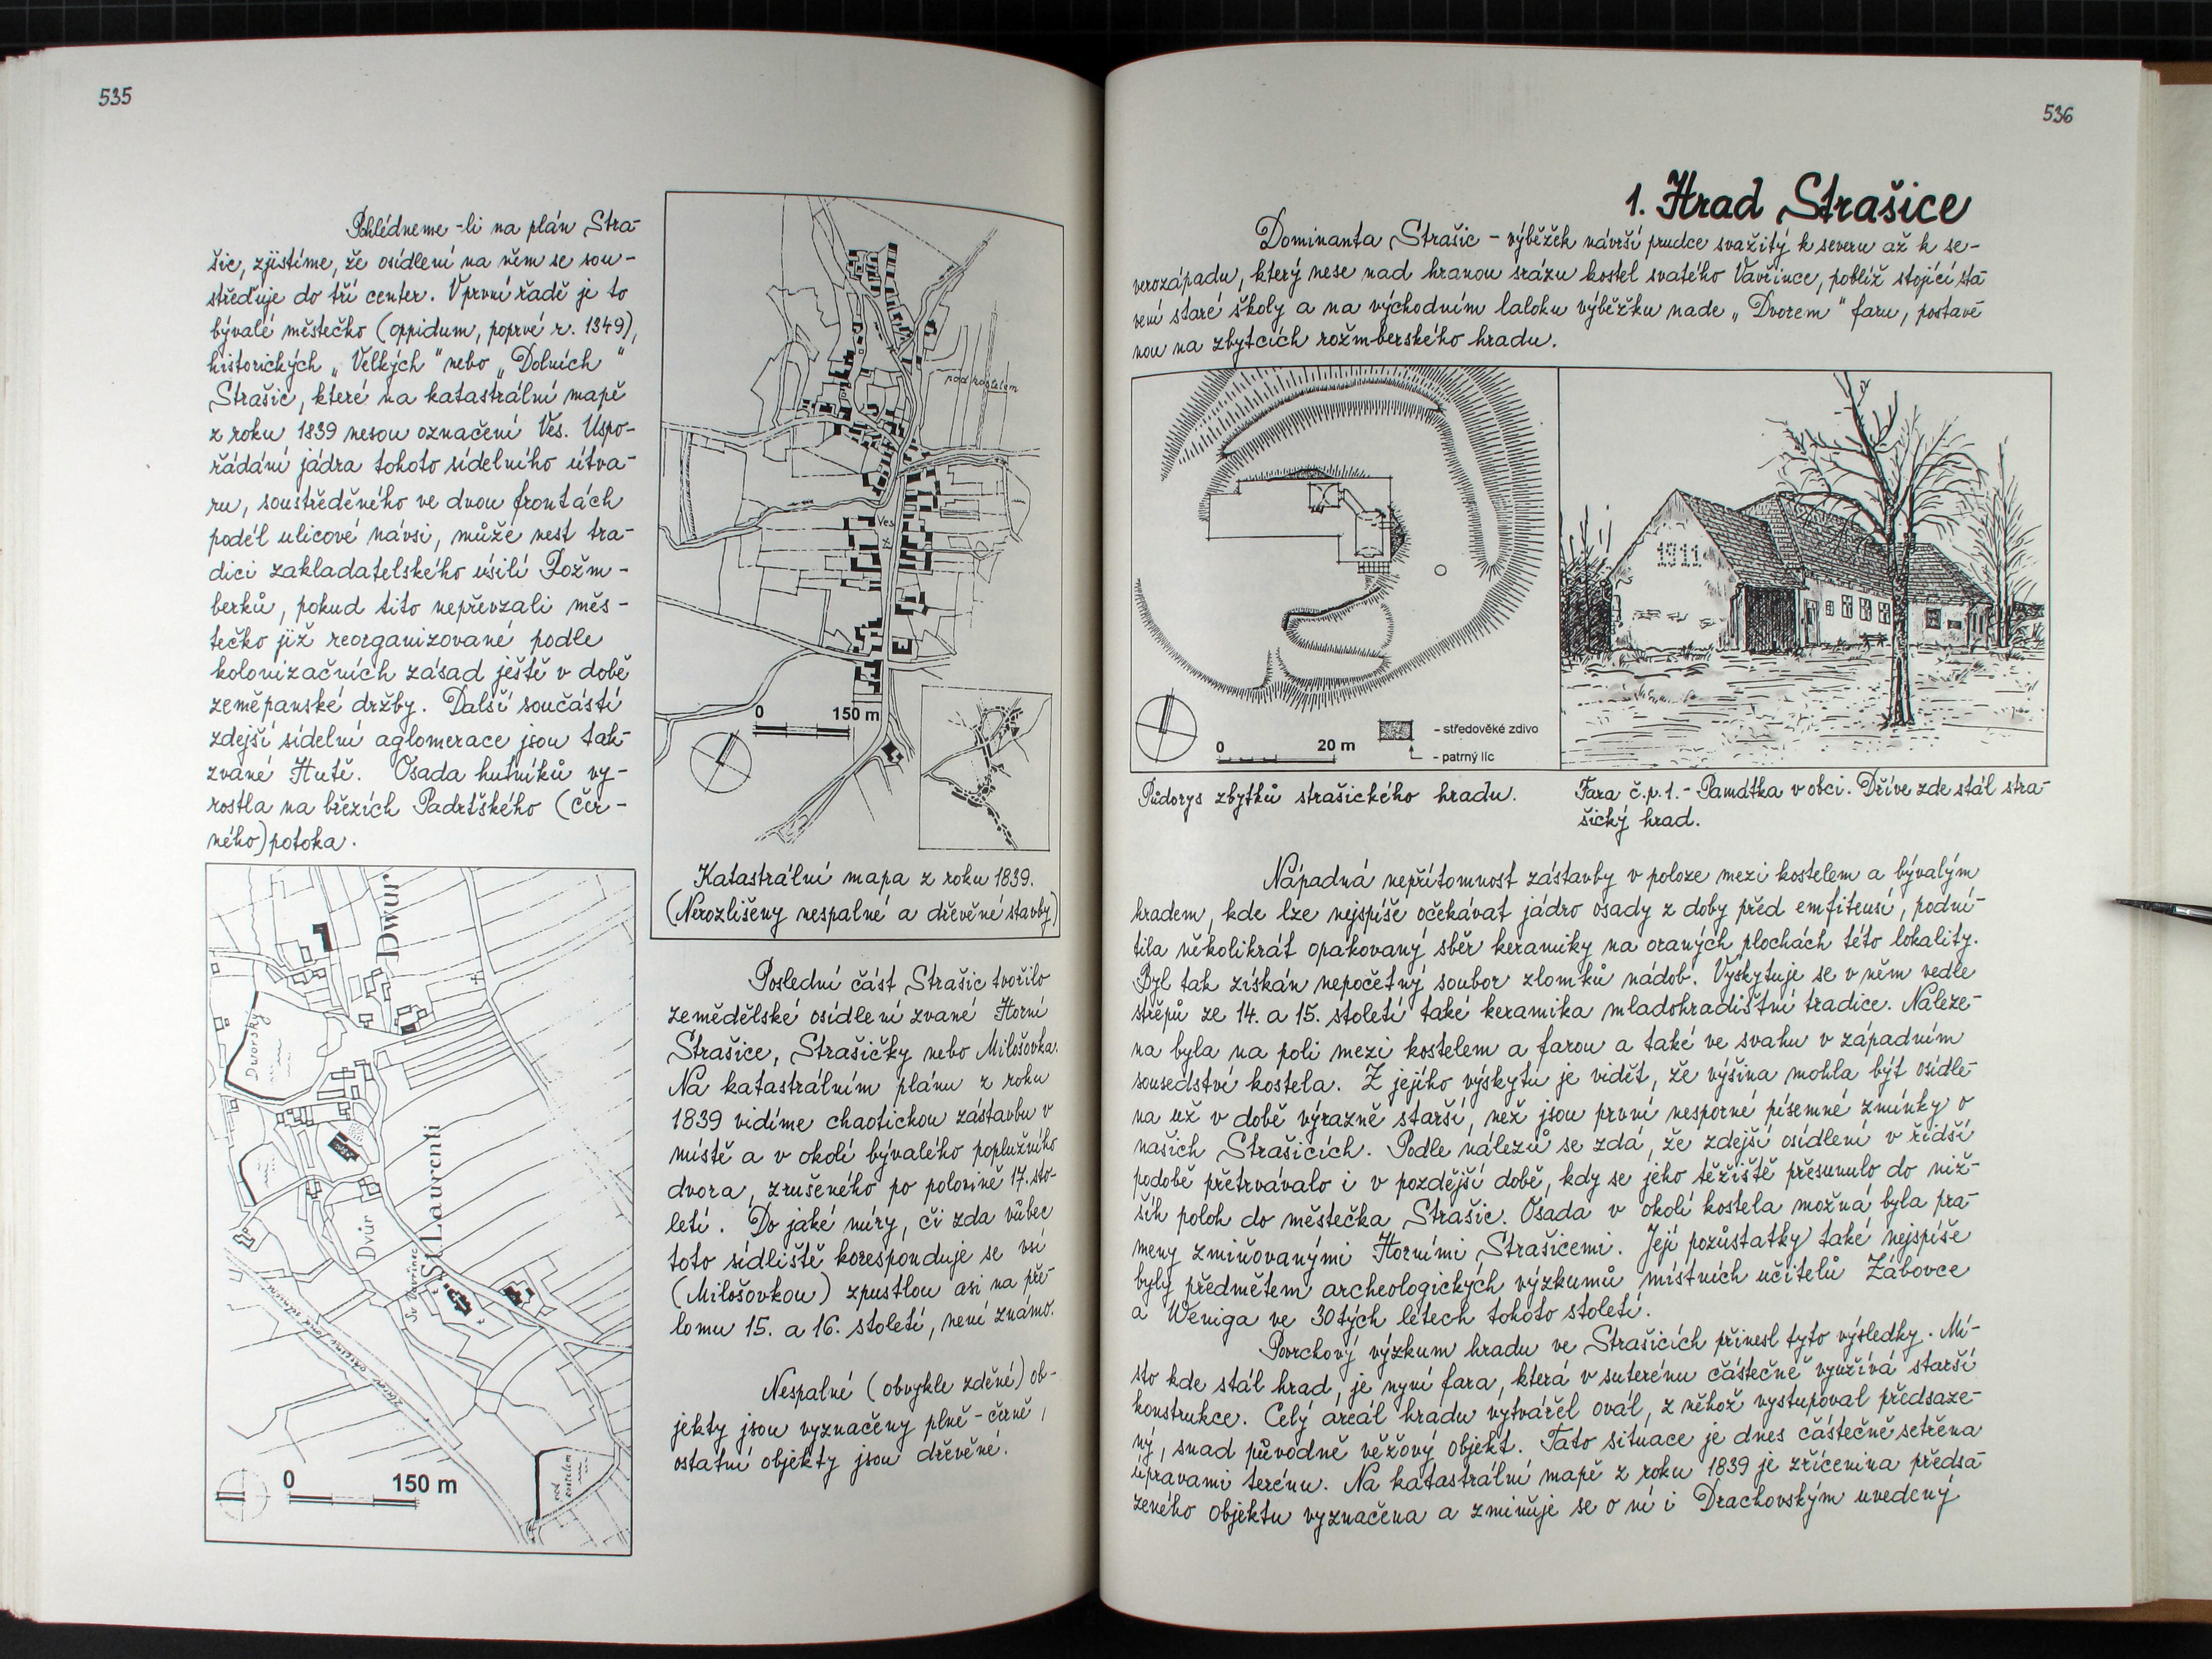 535
Pohlédneme-li na plán Stra-
šic, zjistíme, že osídlení na něm se sou-
střeďuje do tří center. V první řadě je to
bývalé městečko (oppidum, poprvé r. 1349),
historických „Velkých" nebo „Dolních"
Strašic, které na katastrální mapě
z roku 1839 nesou označení Ves. Uspo-
řádání jádra tohoto sídelního útva-
ru, soustředěného ve dvou frontách
podél ulicové návsi, může nest tra-
dici zakladatelského úsilí Rožm-
berků, pokud tito nepřevzali měs-
tečko již reorganizované podle
kolonizačních zásad ještě v době
zeměpanské držby. Další součástí
zdejší sídelní aglomerace jsou tak-
zvané Hutě. Osada hutníků vy-
rostla na březích Padrťského (Čer-
ného) potoka.
Dwur
Dworsky
Dvůr
St Laurenti
Sv. Vavřinec
pod kostelem
0 150 m
pod kostelem
Ves
0 150 m
Katastrální mapa z roku 1839.
(Nerozlišeny nespalné a dřevěné stavby)
Poslední část Strašic tvořilo
zemědělské osídlení zvané Horní
Strašice, Strašičky nebo Milošovka.
Na katastrálním plánu z roku
1839 vidíme chaotickou zástavbu v
místě a v okolí bývalého poplužního
dvora, zrušeného po polovině 17. sto-
letí. Do jaké míry, či zda vůbec
toto sídliště koresponduje se vsí
(Milošovkou) zpustlou asi na pře-
lomu 15. a 16. století, není známo.
Nespalné (obvykle zděné) ob-
jekty jsou vyznačeny plně - černě,
ostatní objekty jsou dřevěné.
536
1. Hrad Strašice
Dominanta Strašic - výběžek návrší prudce svažitý k severu až k se-
verozápadu, který nese nad hranou srázu kostel svatého Vavřince, poblíž stojící sta-
vení staré školy a na východním laloku výběžku nade „Dvorem" faru, postave-
nou na zbytcích rožmberského hradu.
0 20 m
- středověké zdivo
- patrný líc
1911
Půdorys zbytků strašického hradu.
Fara č.p.1. - Památka v obci. Dříve zde stál stra-
šický hrad.
Nápadná nepřítomnost zástavby v poloze mezi kostelem a bývalým
hradem, kde lze nejspíše očekávat jádro osady z doby před emfiteusí, podní-
tila několikrát opakovaný sběr keramiky na oraných plochách této lokality.
Byl tak získán nepočetný soubor zlomků nádob. Vyskytuje se v něm vedle
střepů ze 14. a 15. století také keramika mladohradištní tradice. Naleze-
na byla na poli mezi kostelem a farou a také ve svahu v západním
sousedství kostela. Z jejího výskytu je vidět, že výšina mohla být osídle-
na už v době výrazně starší, než jsou první nesporné písemné zmínky o
našich Strašicích. Podle nálezů se zdá, že zdejší osídlení v řidší
podobě přetrvávalo i v pozdější době, kdy se jeho těžiště přesunulo do niž-
ších poloh do městečka Strašic. Osada v okolí kostela možná byla pra-
meny zmiňovanými Horními Strašicemi. Její pozůstatky také nejspíše
byly předmětem archeologických výzkumů místních učitelů Zábovce
a Weniga ve 30tých letech tohoto století.
Povrchový výzkum hradu ve Strašicích přinesl tyto výsledky. Mí-
sto kde stál hrad, je nyní fara, která v suterénu částečně využívá starší
konstrukce. Celý areál hradu vytvářel ovál, z něhož vystupoval předsaze-
ný, snad původně věžový objekt. Tato situace je dnes částečně setřena
úpravami terénu. Na katastrální mapě z roku 1839 je zřícenina předsa-
zeného objektu vyznačena a zmiňuje se o ní i Drachovským uvedený